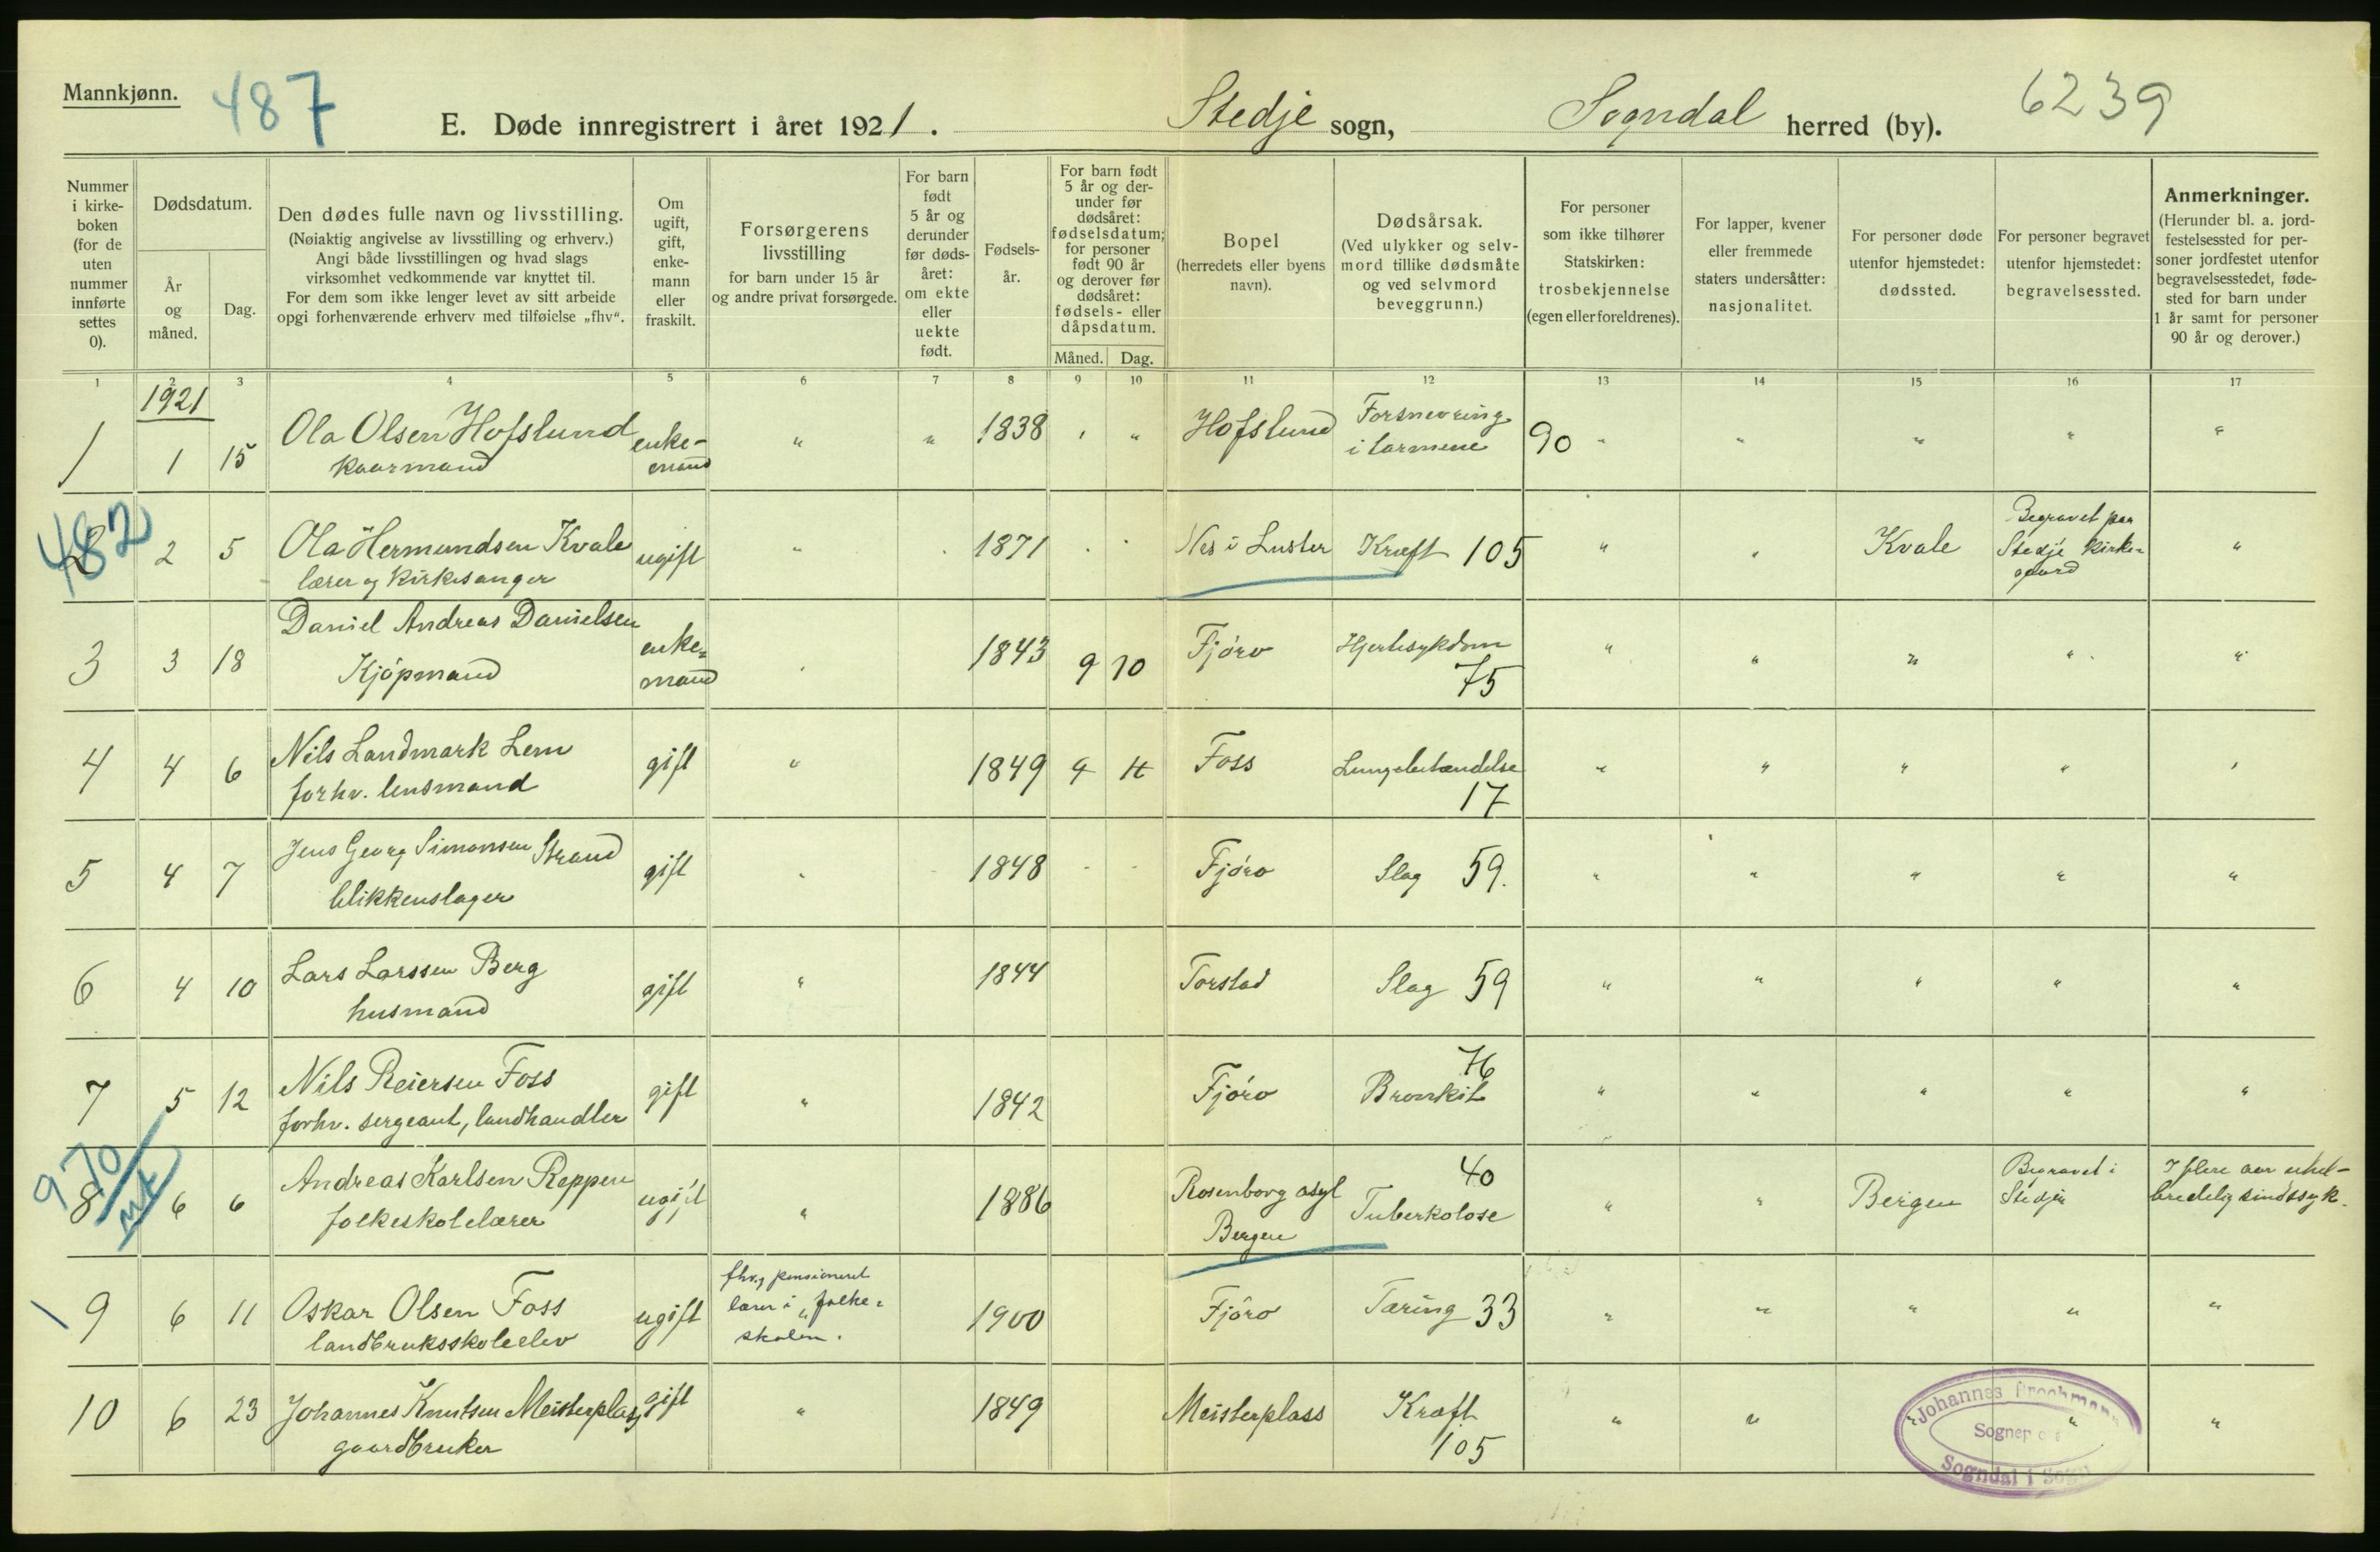 Mannkjønn.
487
E. Døde innregistrert i året 1921. Stedje sogn, Sogndal herred (by). 6239
Nummer i kirke- boken (for de uten nummer innførte settes 0).
Dødsdatum.
År og måned.
Dag.
Den dødes fulle navn og livsstilling.
(Nøiaktig angivelse av livsstilling og erhverv.)
Angi både livsstillingen og hvad slags
virksomhet vedkommende var knyttet til.
For dem som ikke lenger levet av sitt arbeide
opgi forhenværende erhverv med tilføielse „fhv“.
Om ugift, gift, enke- mann eller fraskilt.
Forsørgerens
livsstilling
for barn under 15 år
og andre privat forsørgede.
For barn født 5 år og derunder før døds- året: om ekte eller uekte født.
Fødsels- år.
For barn født 5 år og der- under før dødsåret: fødselsdatum; for personer født 90 år og derover før dødsåret: fødsels- eller dåpsdatum.
Måned. Dag.
Bopel
(herredets eller byens
navn).
Dødsårsak.
(Ved ulykker og selv-
mord tillike dødsmåte
og ved selvmord
beveggrunn.)
For personer
som ikke tilhører
Statskirken:
trosbekjennelse
(egen eller foreldrenes).
For lapper, kvener
eller fremmede
staters undersåtter:
nasjonalitet.
For personer døde
utenfor hjemstedet:
dødssted.
For personer begravet
utenfor hjemstedet:
begravelsessted.
Anmerkninger.
(Herunder bl. a. jord-
festelsessted for per-
soner jordfestet utenfor
begravelsesstedet, føde-
sted for barn under
1 år samt for personer
90 år og derover.)
1 2 3 4 5 6 7 8 9 10 11 12 13 14 15 16 17
1921
1 1 15 Ola Olsen Hofslund enke- " " 1838 " Hofslund Forsnevring 90 " " " " "
kaarmand mand i tarmene
482
2 2 5 Ola Hermundsen Kvale ugift " 1871 Nes i Luster Kræft 105 " " Kvale Begravet paa "
lærer og kirkesanger Stedje kirke-
gaard
3 3 18 Daniel Andreas Danielsen enke- 1843 9 10 Fjøro Hjertesykdom " " " " "
Kjøpmand mand 75
4 4 6 Nils Landmark Lem gift " 1849 Foss Lungebetændelse " " " "
forhv. lensmand 17
5 4 7 Jens Georg Simonsen Strand gift 1848 Fjøro Slag 59. " " " " "
blikkenslager
6 4 10 Lars Larssen Berg gift " 1844 Torstad Slag 59 " " " " "
husmand
7 5 12 Nils Reiersen Foss gift " 1842 Fjøro Bronkit 76 " " " " "
forhv. sergeant, landhandler
970
8 6 6 Andreas Karlsen Reppen ugift " 1886 Rosenborg asyl 40 " " Bergen Begravet i I flere aar uhel-
folkeskolelærer Bergen Tuberkolose Stedje bredelig sindssyk.
9 6 11 Oskar Olsen Foss ugift fhv., pensioneret 1900 Fjøro Tæring 33 " " " " "
landbruksskoleelev lærer i folke-
skolen.
10 6 23 Johannes Knutsen Meisterplass gift " 1849 Meisterplass Kræft " " " " "
gaardbruker 105
Johannes Brochmann
Sogneprest
Sogndal i Sogn